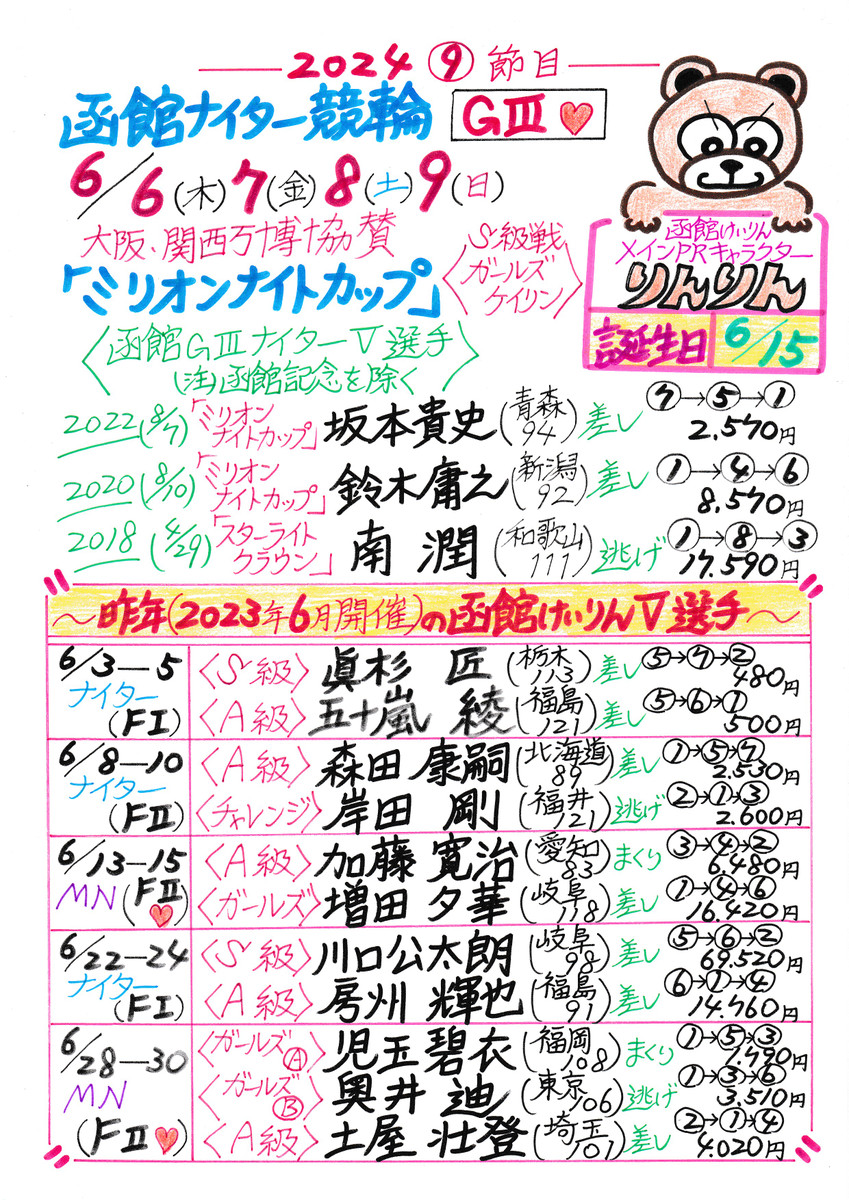 2024⑨節目
函館ナイター競輪 GⅢ♥
6/6(木)7(金)8(土)9(日)
大阪・関西万博協賛
「ミリオンナイトカップ」
〈S級戦
ガールズ
ケイリン〉
函館けいりん
メインPRキャラクター
りんりん
誕生日 6/15
〈函館GⅢナイターV選手
(注)函館記念を除く〉
2022(8/7)「ミリオンナイトカップ」坂本貴史(青森94)差し ⑦→⑤→① 2.570円
2020(8/10)「ミリオンナイトカップ」鈴木庸之(新潟92)差し ①→④→⑥ 8.570円
2018(4/29)「スターライトクラウン」南 潤(和歌山111)逃げ ①→⑧→③ 17.590円
〜昨年(2023年6月開催)の函館けいりんV選手〜
6/3―5 ナイター(FⅠ)
〈S級〉眞杉 匠(栃木113)差し ⑤→⑦→② 480円
〈A級〉五十嵐 綾(福島121)差し ⑤→⑥→① 500円
6/8―10 ナイター(FⅡ)
〈A級〉森田 康嗣(北海道89)差し ①→⑤→⑦ 2.530円
〈チャレンジ〉岸田 剛(福井121)逃げ ②→①→③ 2.600円
6/13―15 MN(FⅡ♥)
〈A級〉加藤 寛治(愛知83)まくり ③→④→② 6.480円
〈ガールズ〉増田 夕華(岐阜118)差し ①→④→⑥ 16.420円
6/22―24 ナイター(FⅠ)
〈S級〉川口公太朗(岐阜98)差し ⑤→⑥→② 69.520円
〈A級〉房州 輝也(福島91)差し ⑥→①→④ 14.760円
6/28―30 MN(FⅡ♥)
〈ガールズⒶ〉児玉碧衣(福岡108)まくり ①→⑤→③ 1.790円
〈ガールズⒷ〉奥井 迪(東京106)逃げ ①→③→⑥ 3.510円
〈A級〉土屋 壮登(埼玉101)差し ②→①→④ 4.020円